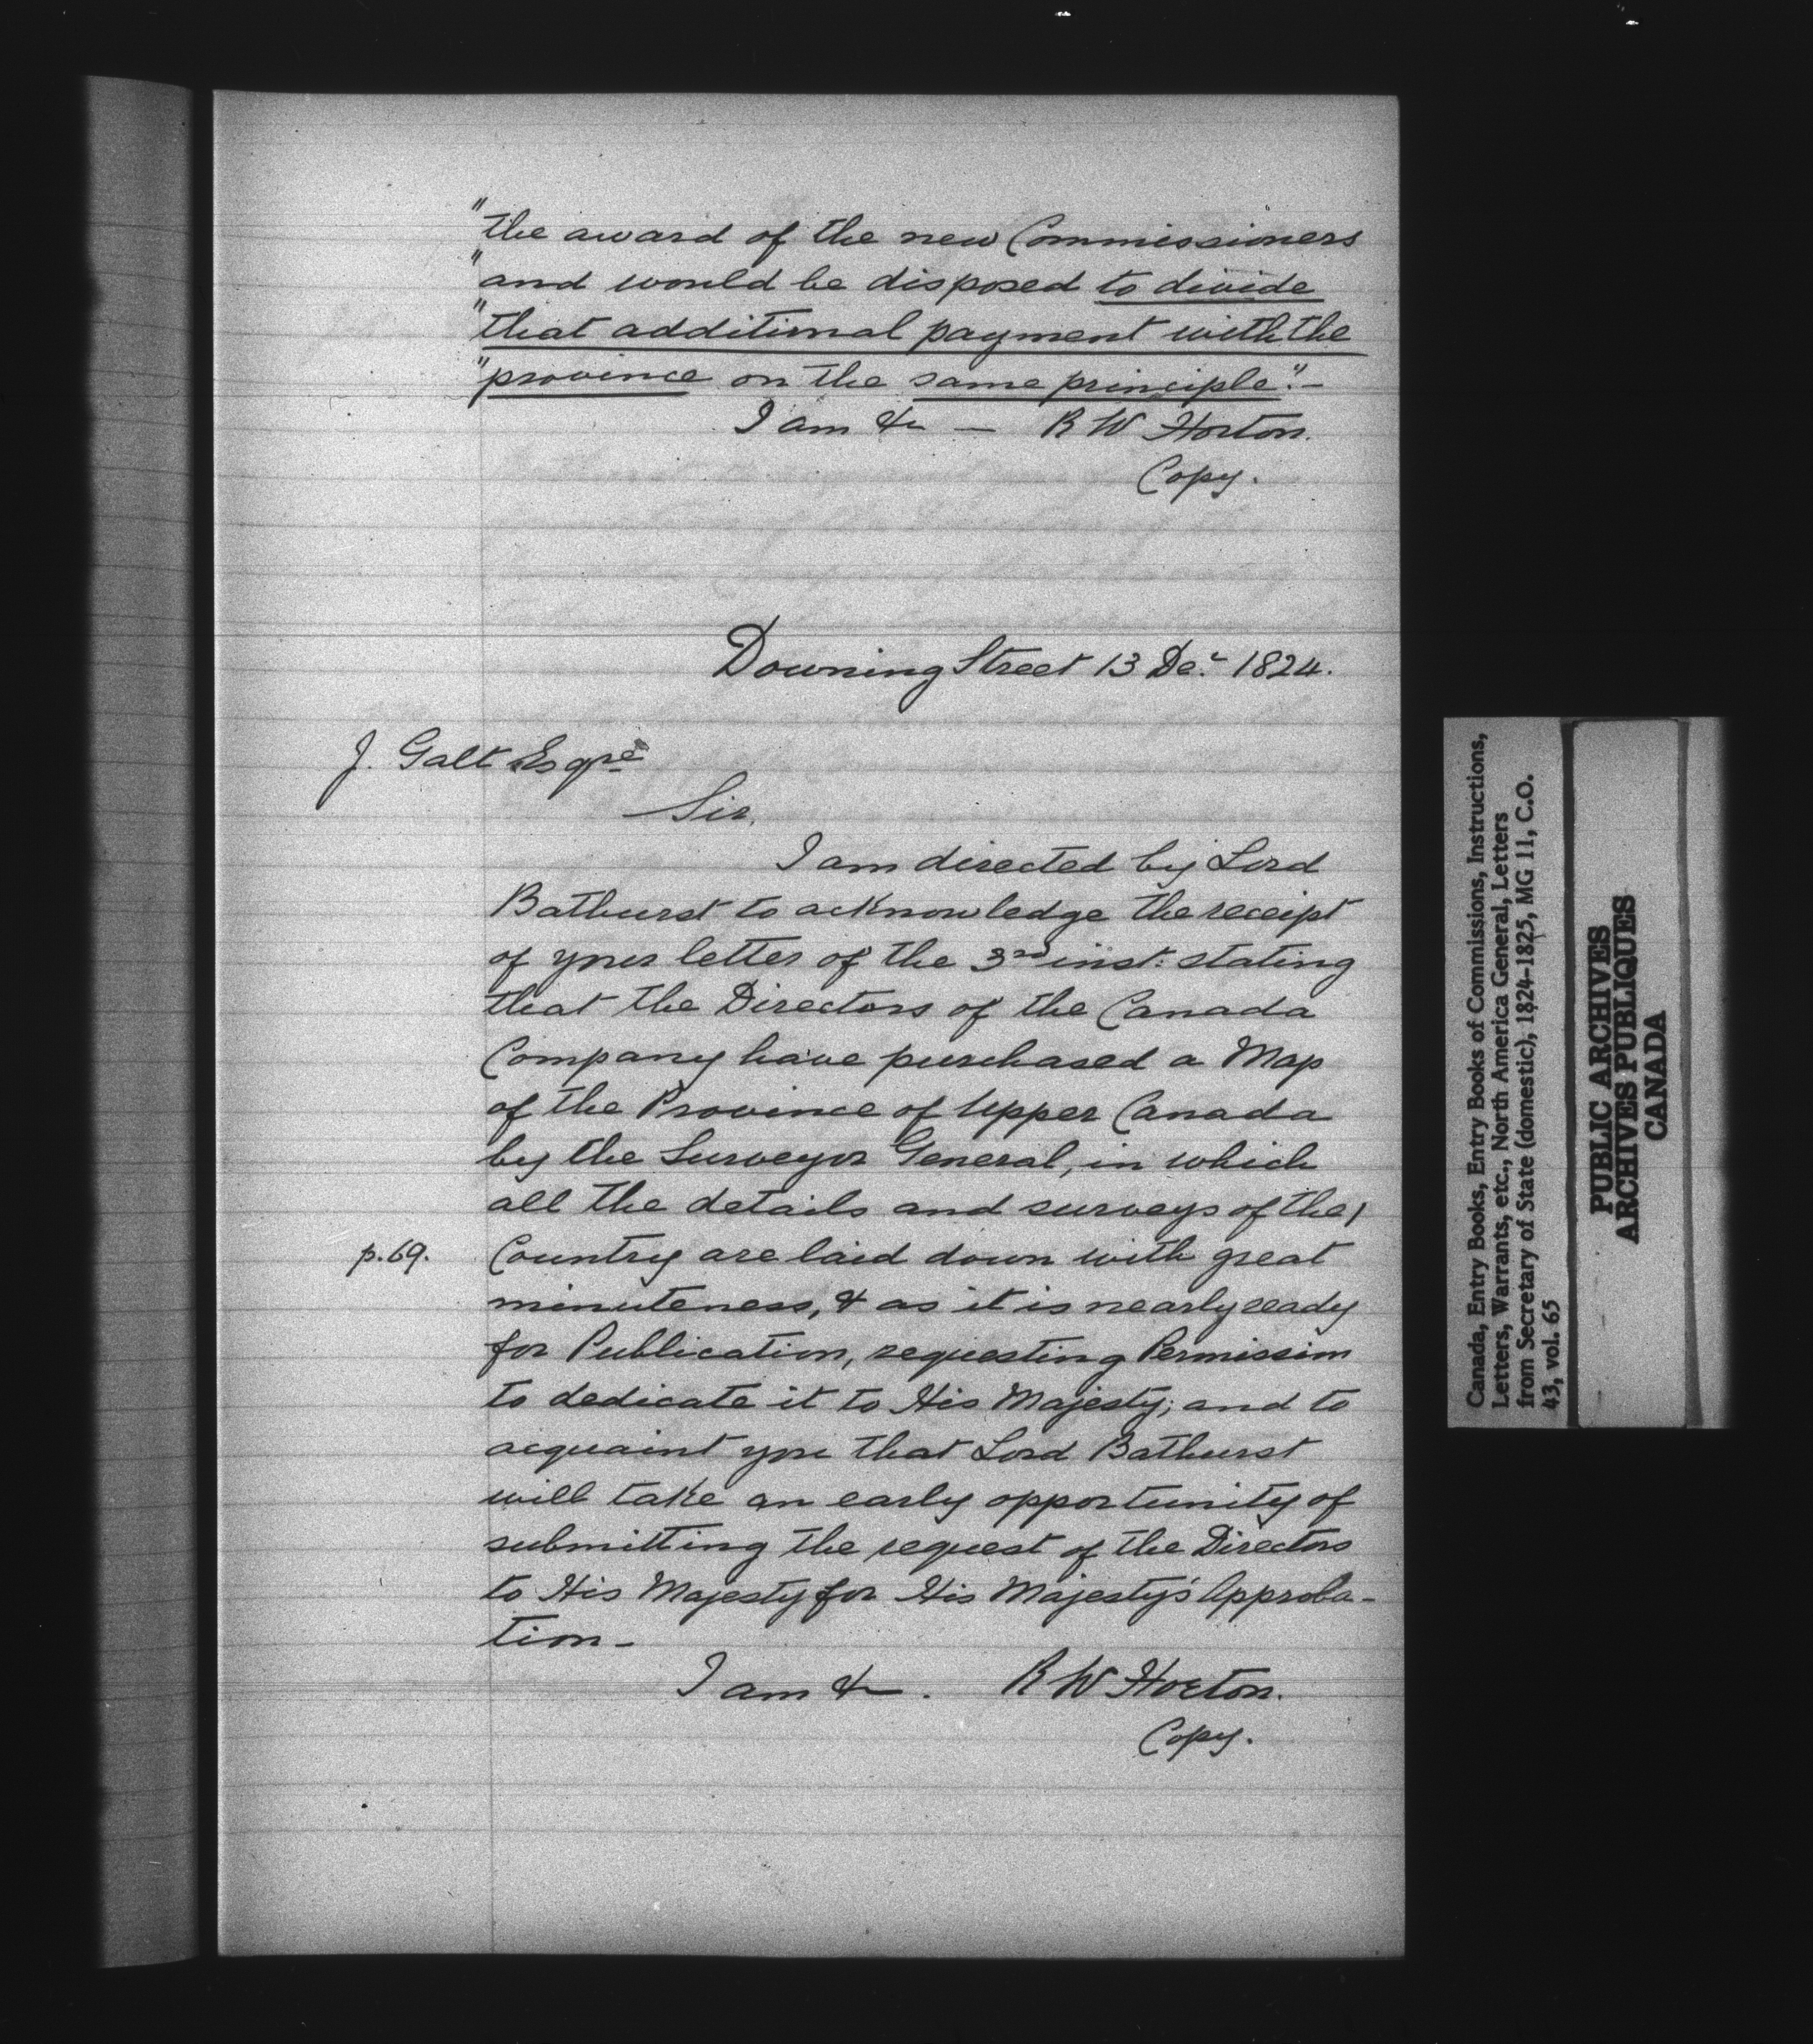 "the award of the new Commissioners
"and would be disposed to divide
"that additional payment with the
"province on the same principle".—
I am &c — R W Horton.
Copy.
Downing Street 13 Dec. 1824.
J. Galt Esqre
Sir,
I am directed by Lord
Bathurst to acknowledge the receipt
of your letter of the 3rd inst: stating
that the Directors of the Canada
Company have purchased a Map
of the Province of Upper Canada
by the Surveyor General, in which
all the details and surveys of the /
p. 69. Country are laid down with great
minuteness, & as it is nearly ready
for Publication, requesting Permission
to dedicate it to His Majesty; and to
acquaint you that Lord Bathurst
will take an early opportunity of
submitting the request of the Directors
to His Majesty for His Majesty's Approba-
tion—
I am &c. R W Horton.
Copy.
Canada, Entry Books, Entry Books of Commissions, Instructions,
Letters, Warrants, etc., North America General, Letters
from Secretary of State (domestic), 1824-1825, MG 11, C.O.
43, vol. 65
PUBLIC ARCHIVES
ARCHIVES PUBLIQUES
CANADA